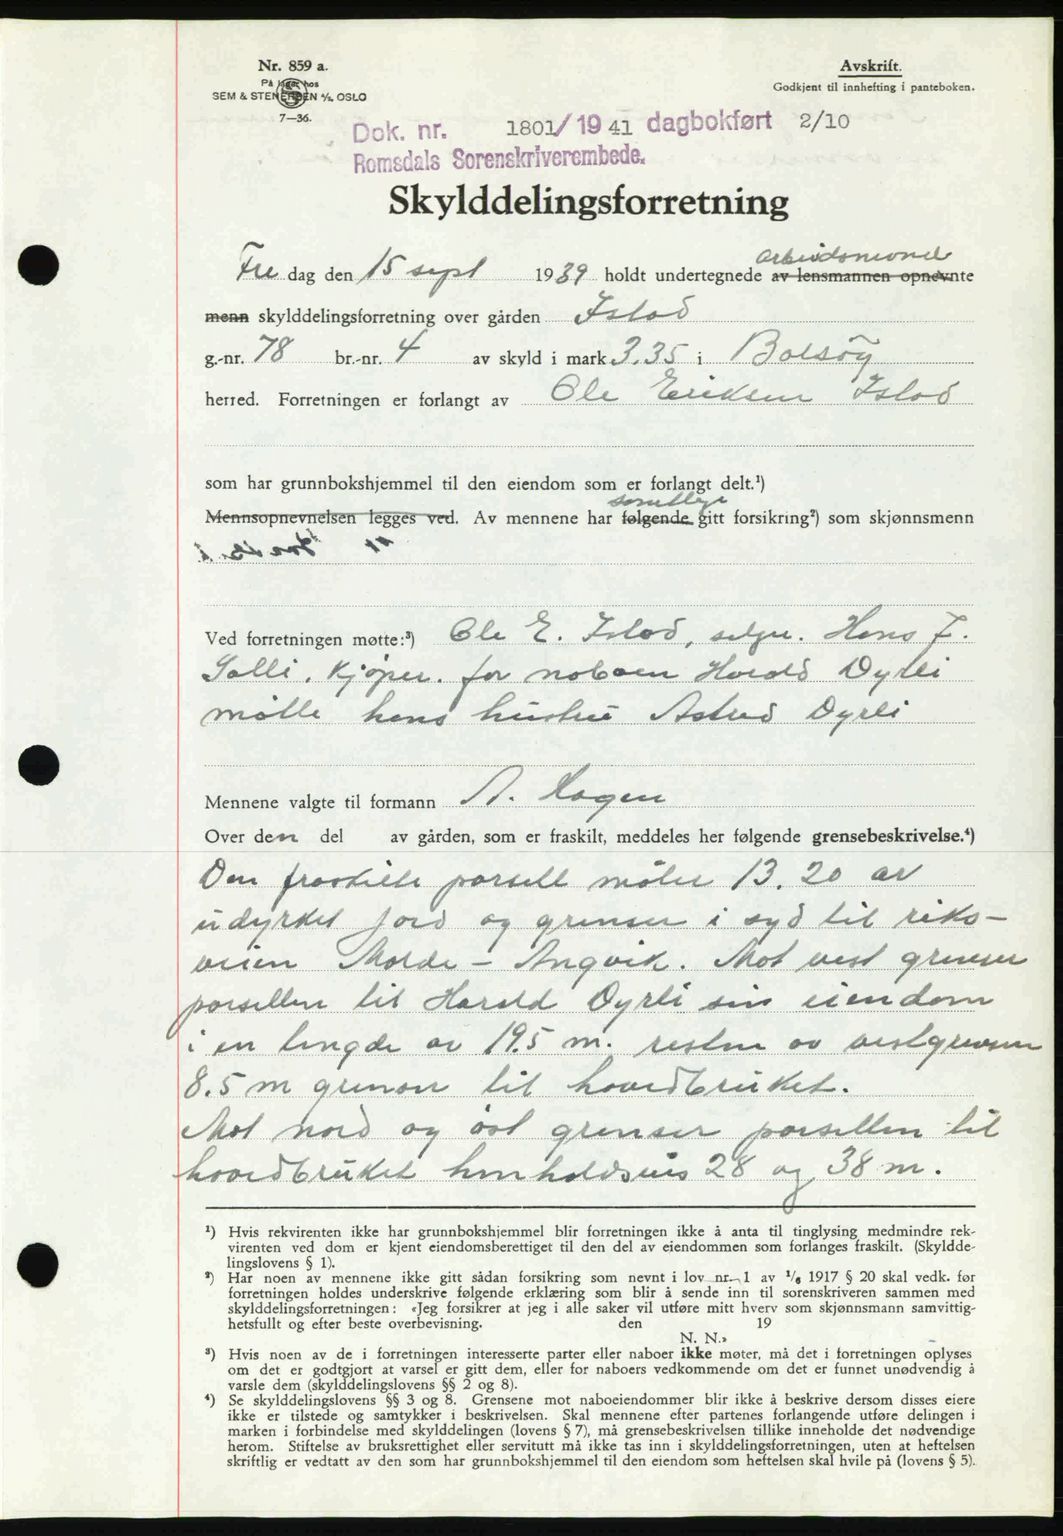 Nr. 859 a.
På lager hos
SEM & STENERSEN A/S, OSLO
7—36.
Avskrift.
Godkjent til innhefting i panteboken.
Dok. nr. 1801/1941 dagbokført 2/10
Romsdals Sorenskriverembede.
Skylddelingsforretning
arbeidsnevnd
Fre dag den 15 sept 1939 holdt undertegnede av lensmannen opnevnte
menn skylddelingsforretning over gården Istad
g.-nr. 78 br.-nr. 4 av skyld i mark 3.35 i Bolsöy
herred. Forretningen er forlangt av Ole Eriksen Istad
som har grunnbokshjemmel til den eiendom som er forlangt delt.¹)
samtlige
Mennsopnevnelsen legges ved. Av mennene har følgende gitt forsikring²) som skjønnsmenn
Ved forretningen møtte:³) Ole E. Istad, selger. Hans J.
Salli, Kjøper. for naboen Harald Dyrli
møtte hans hustru Astrid Dyrli
Mennene valgte til formann A. Hagen
Over den del av gården, som er fraskilt, meddeles her følgende grensebeskrivelse.⁴)
Den fraskilte parsell måler 13.20 ar
udyrket jord og grenser i syd til riks-
veien Molde - Angvik. Mot vest grenser
parsellen til Harald Dyrli sin eiendom
i en lengde av 19.5 m. resten av vestgrensen
8.5 m grenser til hovedbruket.
Mot nord og öst grenser parsellen til
hovedbruket henholdsvis 28 og 38 m.
¹) Hvis rekvirenten ikke har grunnbokshjemmel blir forretningen ikke å anta til tinglysing medmindre rek-
virenten ved dom er kjent eiendomsberettiget til den del av eiendommen som forlanges fraskilt. (Skyldde-
lingslovens § 1).
²) Har noen av mennene ikke gitt sådan forsikring som nevnt i lov nr. 1 av ¹/₆ 1917 § 20 skal vedk. før
forretningen holdes underskrive følgende erklæring som blir å sende inn til sorenskriveren sammen med
skylddelingsforretningen: «Jeg forsikrer at jeg i alle saker vil utføre mitt hverv som skjønnsmann samvittig-
hetsfullt og efter beste overbevisning. den 19
N. N.»
³) Hvis noen av de i forretningen interesserte parter eller naboer ikke møter, må det i forretningen oplyses
om det er godtgjort at varsel er gitt dem, eller for naboers vedkommende om det er funnet unødvendig å
varsle dem (skylddelingslovens §§ 2 og 8).
⁴) Se skylddelingslovens §§ 3 og 8. Grensene mot naboeiendommer blir ikke å beskrive dersom disses eiere
ikke er tilstede og samtykker i beskrivelsen. Skal mennene efter partenes forlangende utføre delingen i
marken i forbindelse med skylddelingen (lovens § 7), må grensebeskrivelsen tillike inneholde det nødvendige
herom. Stiftelse av bruksrettighet eller servitutt må ikke tas inn i skylddelingsforretningen, uten at heftelsen
skriftlig er vedtatt av den som har grunnbokshjemmel til den eiendom som heftelsen skal hvile på (lovens § 5).